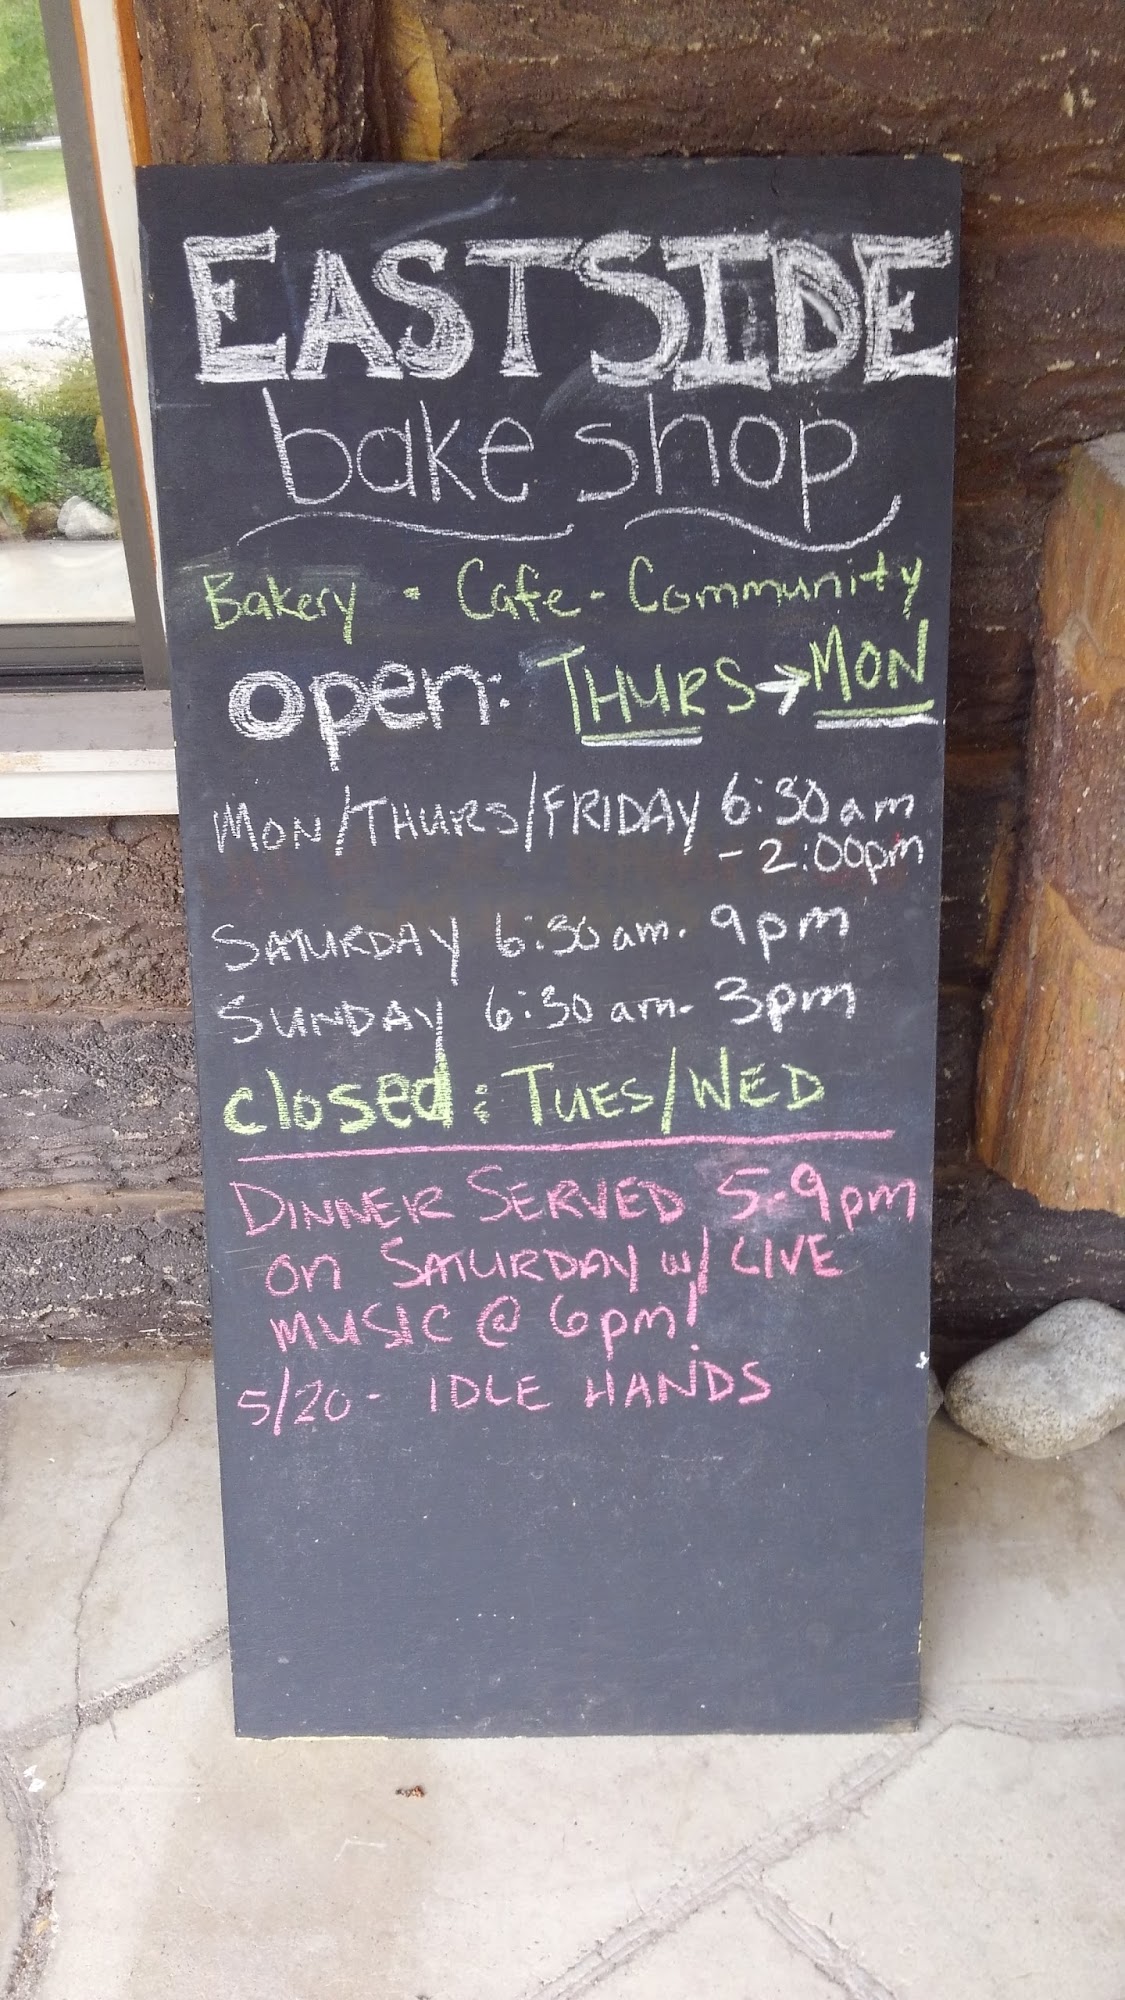 EASTSIDE
bake shop
Bakery • Cafe - Community
open: THURS → MON
MON/THURS/FRIDAY 6:30am
- 2:00pm
SATURDAY 6:30am - 9pm
SUNDAY 6:30am - 3pm
closed: TUES/WED
DINNER SERVED 5-9pm
on SATURDAY w/ LIVE
MUSIC @ 6pm!
5/20 - IDLE HANDS